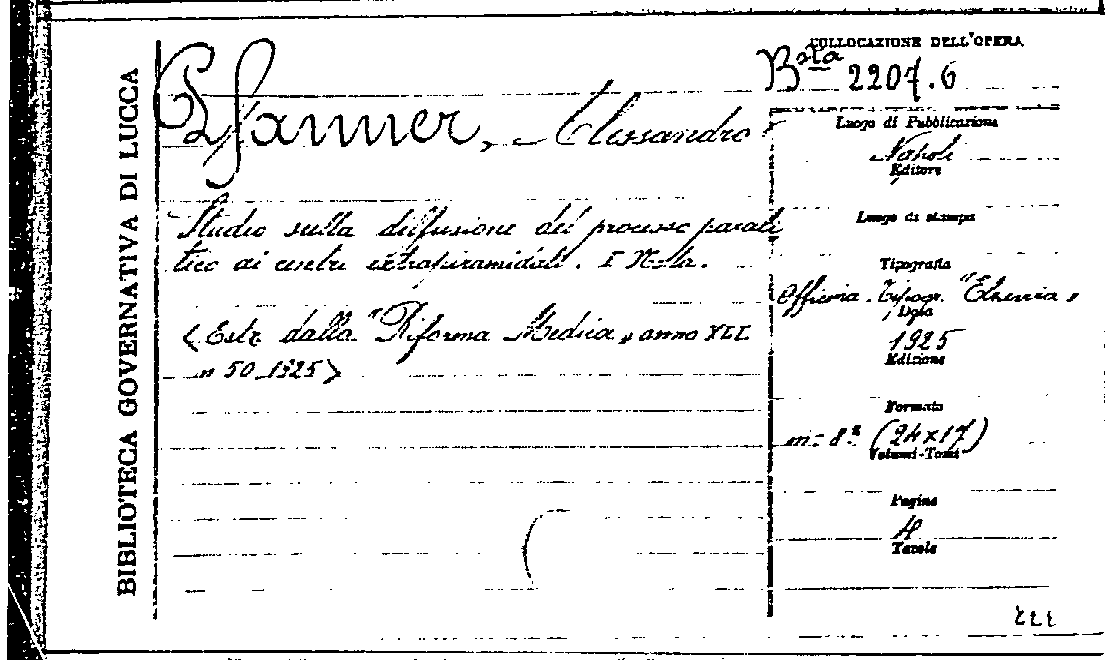 BIBLIOTECA GOVERNATIVA DI LUCCA
Pfanner, Alessandro
Studio sulla diffusione del processo parali
tico ai centri extrapiramidali. I Nota.
(Estr. dalla "Riforma Medica" anno XLI
n 50 1925)
COLLOCAZIONE DELL'OPERA
Bsta 2207.6
Luogo di Pubblicazione
Napoli
Editore
Luogo di stampa
Tipografia
Officina Tipogr. "Etruria"
Data
1925
Edizione
Formato
in-8° (24x17)
Volumi-Tomi
Pagine
4
Tavole